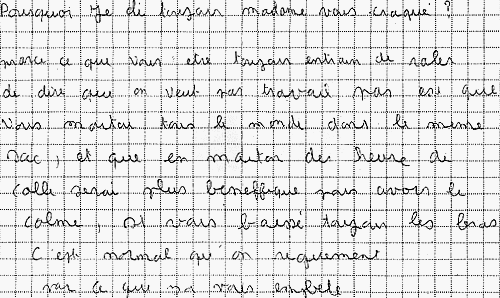 Pourquoi je di toujours madame vous craqué ?
parce ce que vous etre toujour entrain de raler
de dire que on veut pas travaié pas que
vous mentai tous le monde dans le meme
sac, et que en mettan des heure de
colle serai plus beneffique pour avoir le
calme, et vous baissé toujour les bras
C'est normal qu'on
par ce que sa vous embete